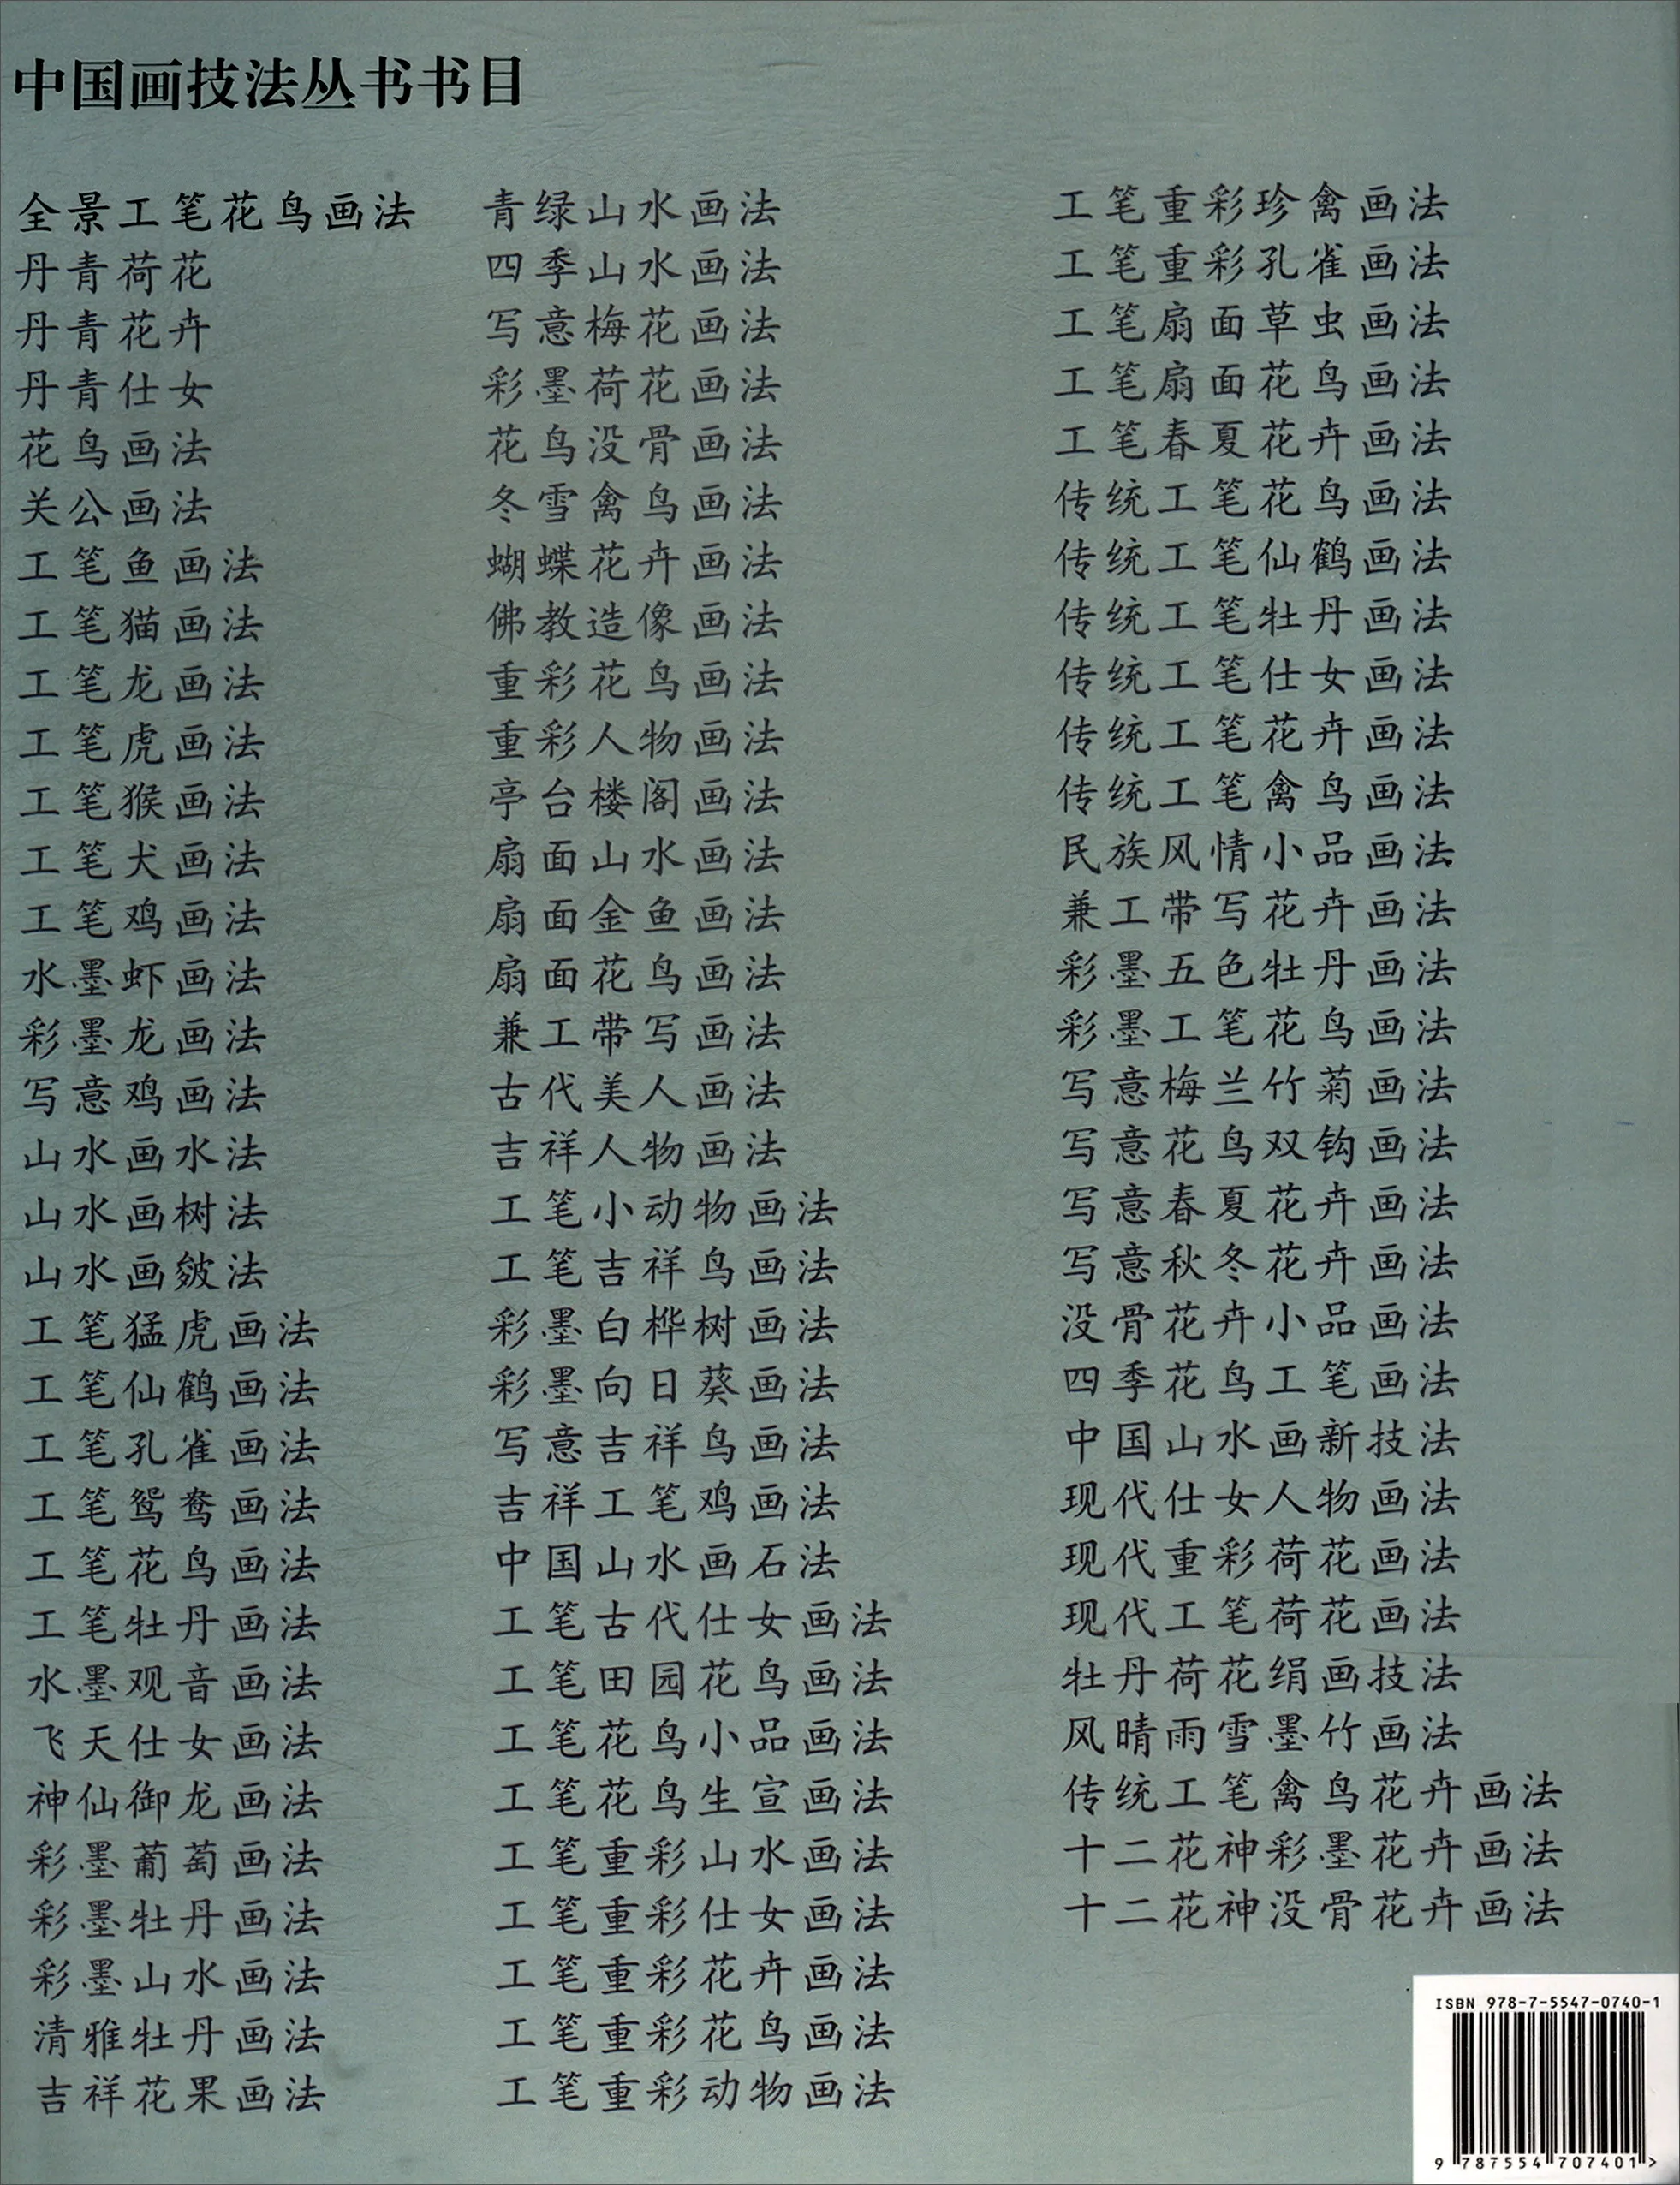 中国画技法丛书书目
全景工笔花鸟画法
丹青荷花
丹青花卉
丹青仕女
花鸟画法
关公画法
工笔鱼画法
工笔猫画法
工笔龙画法
工笔虎画法
工笔猴画法
工笔犬画法
工笔鸡画法
水墨虾画法
彩墨龙画法
写意鸡画法
山水画水法
山水画树法
山水画皴法
工笔猛虎画法
工笔仙鹤画法
工笔孔雀画法
工笔鸳鸯画法
工笔花鸟画法
工笔牡丹画法
水墨观音画法
飞天仕女画法
神仙御龙画法
彩墨葡萄画法
彩墨牡丹画法
彩墨山水画法
清雅牡丹画法
吉祥花果画法
青绿山水画法
四季山水画法
写意梅花画法
彩墨荷花画法
花鸟没骨画法
冬雪禽鸟画法
蝴蝶花卉画法
佛教造像画法
重彩花鸟画法
重彩人物画法
亭台楼阁画法
扇面山水画法
扇面金鱼画法
扇面花鸟画法
兼工带写画法
古代美人画法
吉祥人物画法
工笔小动物画法
工笔吉祥鸟画法
彩墨白桦树画法
彩墨向日葵画法
写意吉祥鸟画法
吉祥工笔鸡画法
中国山水画石法
工笔古代仕女画法
工笔田园花鸟画法
工笔花鸟小品画法
工笔花鸟生宣画法
工笔重彩山水画法
工笔重彩仕女画法
工笔重彩花卉画法
工笔重彩花鸟画法
工笔重彩动物画法
工笔重彩珍禽画法
工笔重彩孔雀画法
工笔扇面草虫画法
工笔扇面花鸟画法
工笔春夏花卉画法
传统工笔花鸟画法
传统工笔仙鹤画法
传统工笔牡丹画法
传统工笔仕女画法
传统工笔花卉画法
传统工笔禽鸟画法
民族风情小品画法
兼工带写花卉画法
彩墨五色牡丹画法
彩墨工笔花鸟画法
写意梅兰竹菊画法
写意花鸟双钩画法
写意春夏花卉画法
写意秋冬花卉画法
没骨花卉小品画法
四季花鸟工笔画法
中国山水画新技法
现代仕女人物画法
现代重彩荷花画法
现代工笔荷花画法
牡丹荷花绢画技法
风晴雨雪墨竹画法
传统工笔禽鸟花卉画法
十二花神彩墨花卉画法
十二花神没骨花卉画法
ISBN 978-7-5547-0740-1
9 787554 707401 >